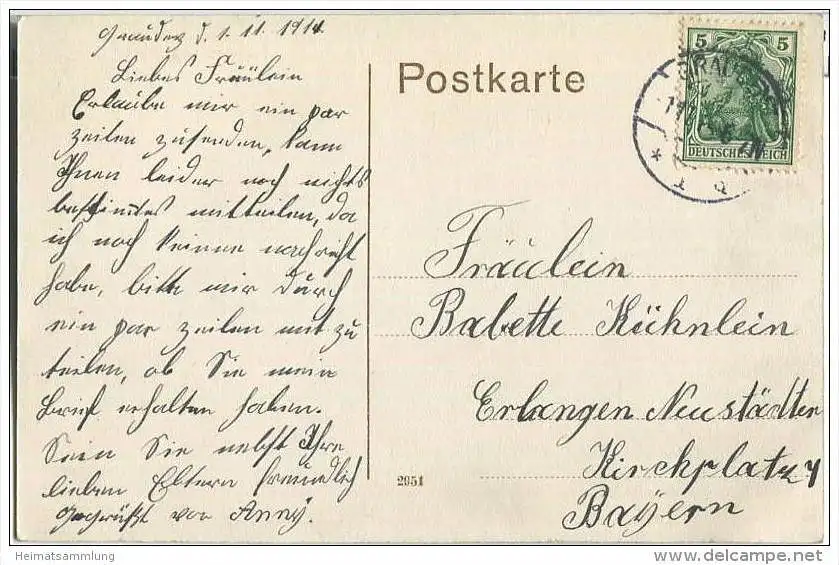 Graudez d. 1. 11. 1914.
Liebes Fräulein
Erlaube mir ein par
zeilen zusenden, kann
Ihnen leider noch nichts
bestimtes mitteilen, da
ich noch keinne nachricht
habe, bitte mir durch
ein par zeilen mit zu
teilen, ob Sie mein
Brief erhalten haben.
Sein Sie nebst Ihre
lieben Eltern freundlich
gegrüßt von Anny.
Postkarte
5 5
DEUTSCHES REICH
Fräulein
Babette Kühnlein
Erlangen Neustädter
Kirchplatz 4
Bayern
2951
Heimatsammlung
www.delcampe.net